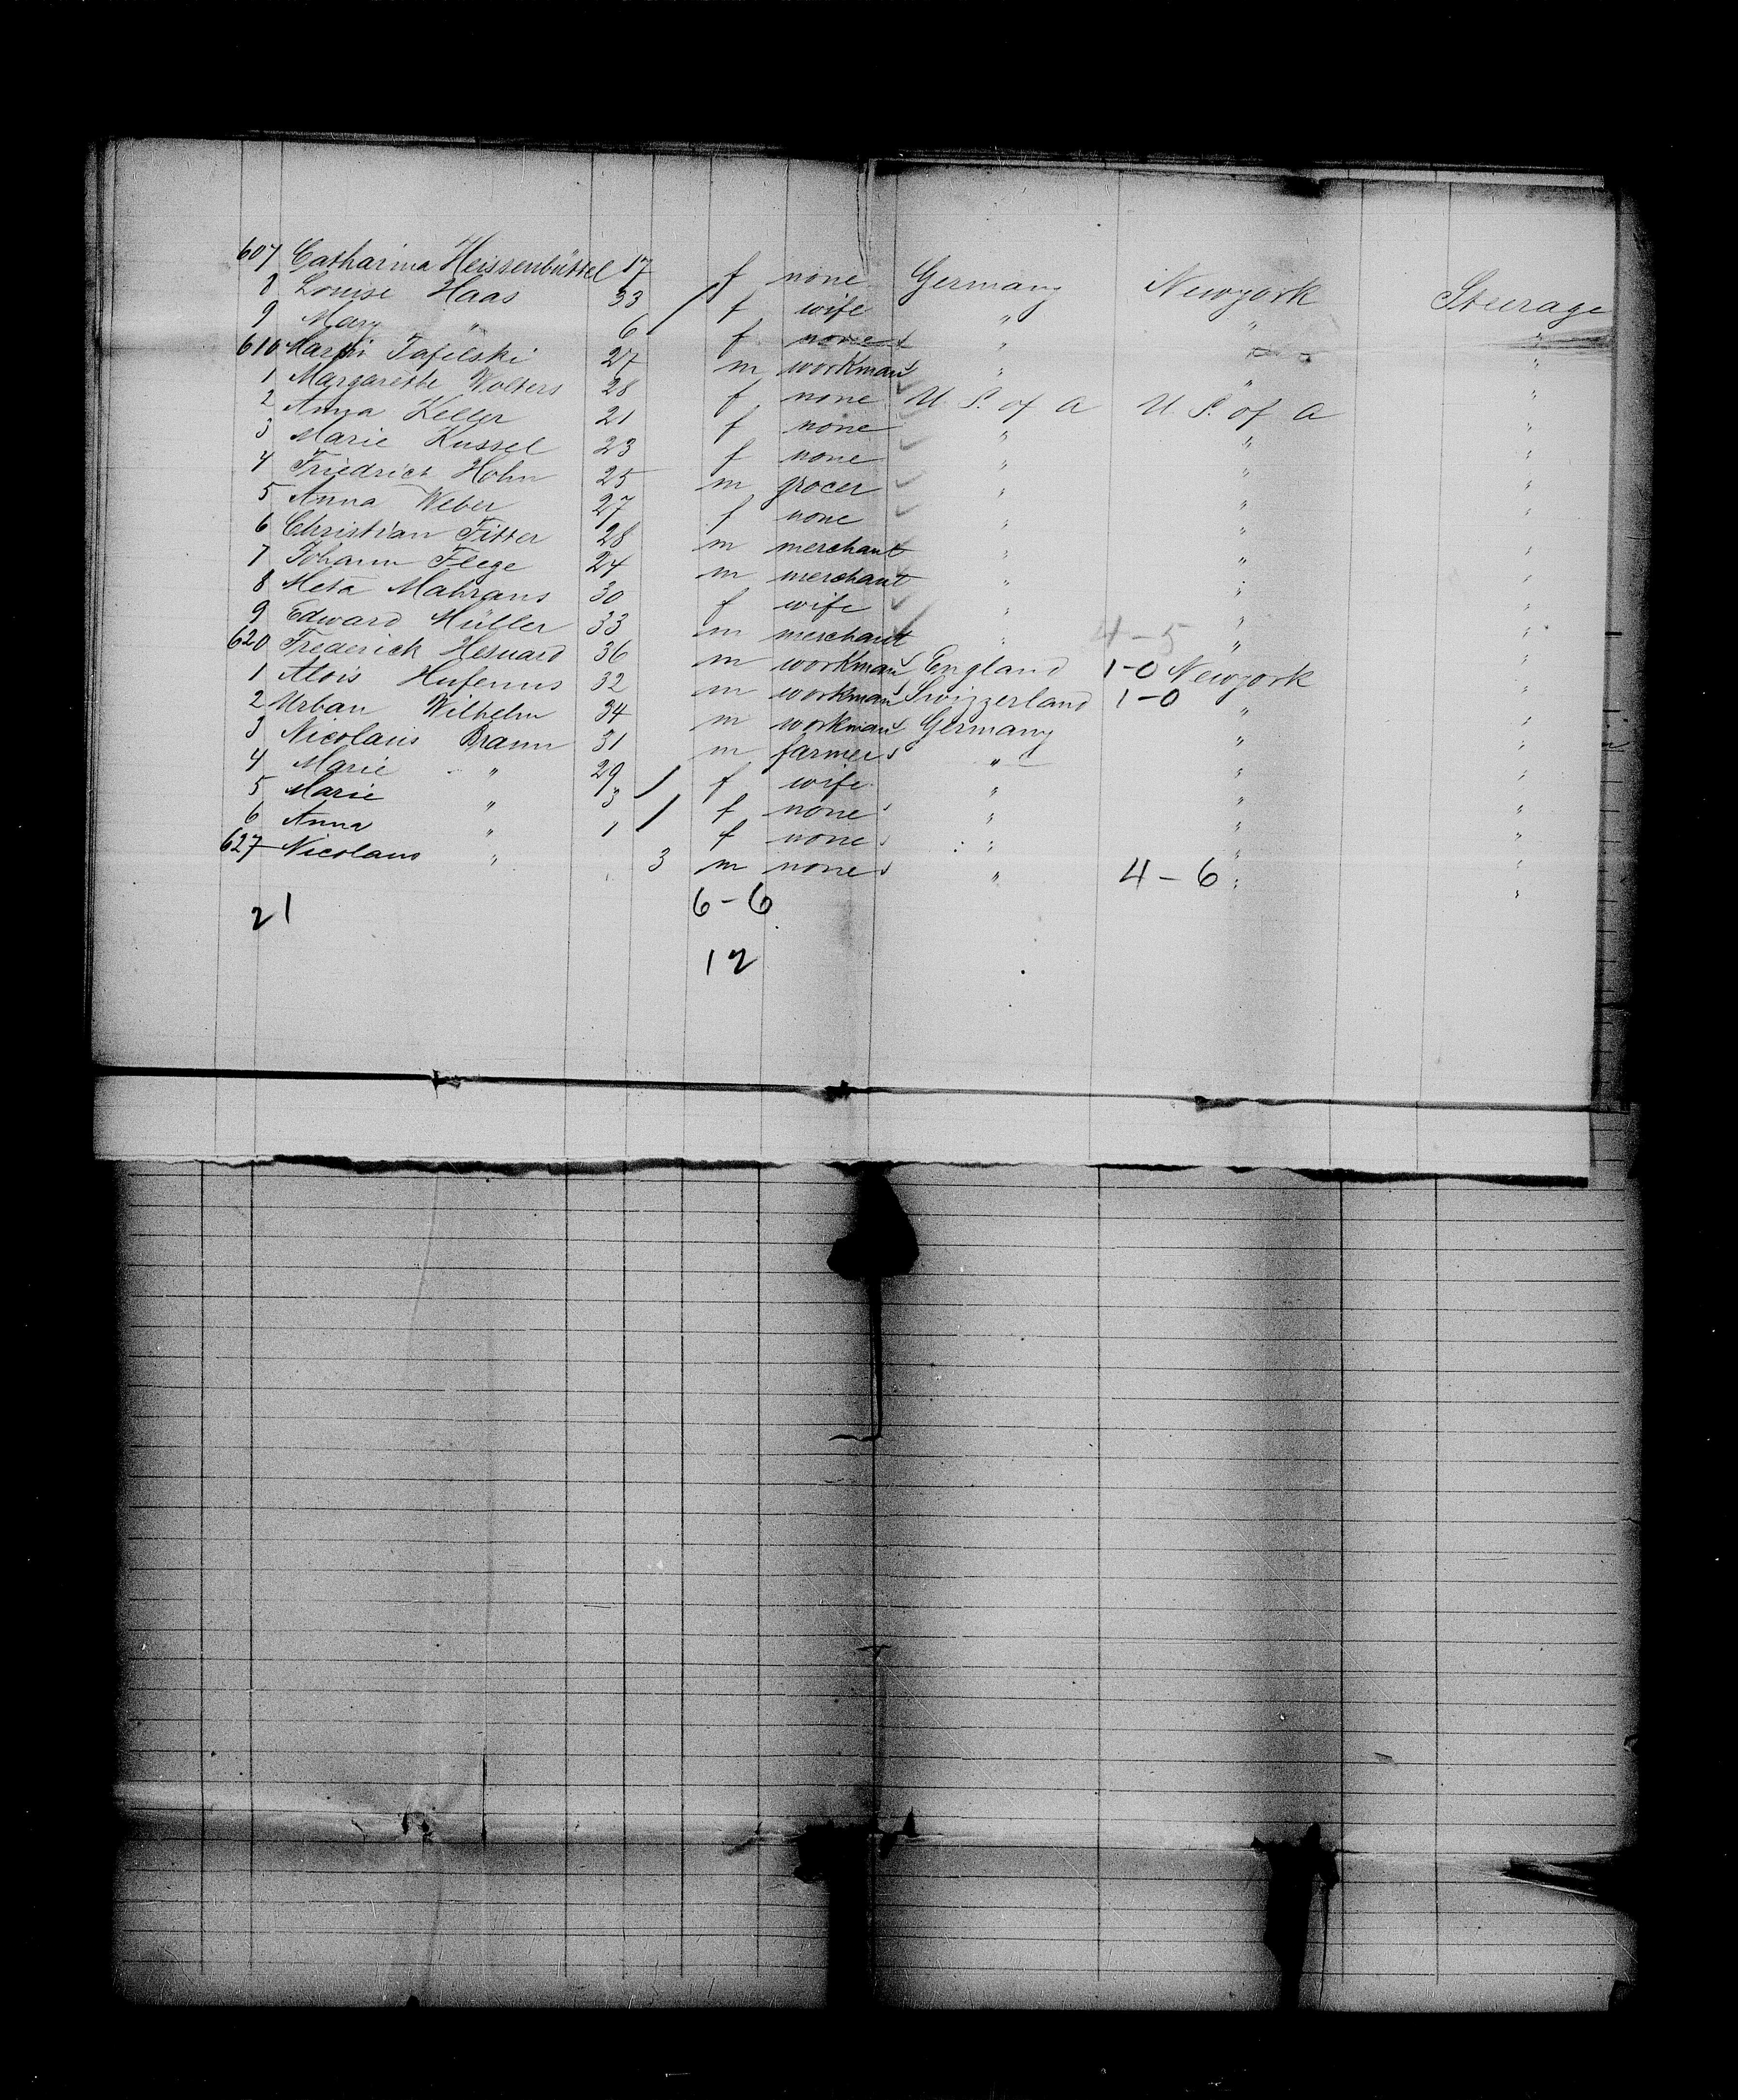 607 Catharina Heissenbüttel 17 f none Germany Newyork Steerage
8 Louise Haas 33 / f wife " " "
9 Mary " 6 f none " " "
610 27 m workman " " "
1 Margarethe Wolters 28 f none U. S. of A U. S. of A "
2 Anna Keller 21 f none " " "
3 Marie Kussel 23 f none " " "
4 Friedrich Hohn 25 m grocer " " "
5 Anna Weber 27 f none " " "
6 Christian Fitter 28 m merchant " " "
7 Johann Flege 24 m merchant " " "
8 Meta Mahrans 30 f wife " " "
9 Edward Müller 33 m merchant " 4-5 " "
620 Frederick 36 m workman England 1-0 Newyork "
1 Alois Hufenus 32 m workman Swizzerland 1-0 " "
2 Urban Wilhelm 34 m workman Germany " "
3 Nicolaus Braun 31 m farmer " " "
4 Marie " 29 / f wife " " "
5 Marie " 3 / f none " " "
6 Anna " 1 f none " " "
627 Nicolaus " 3 m none " 4-6 " "
21 6-6
12